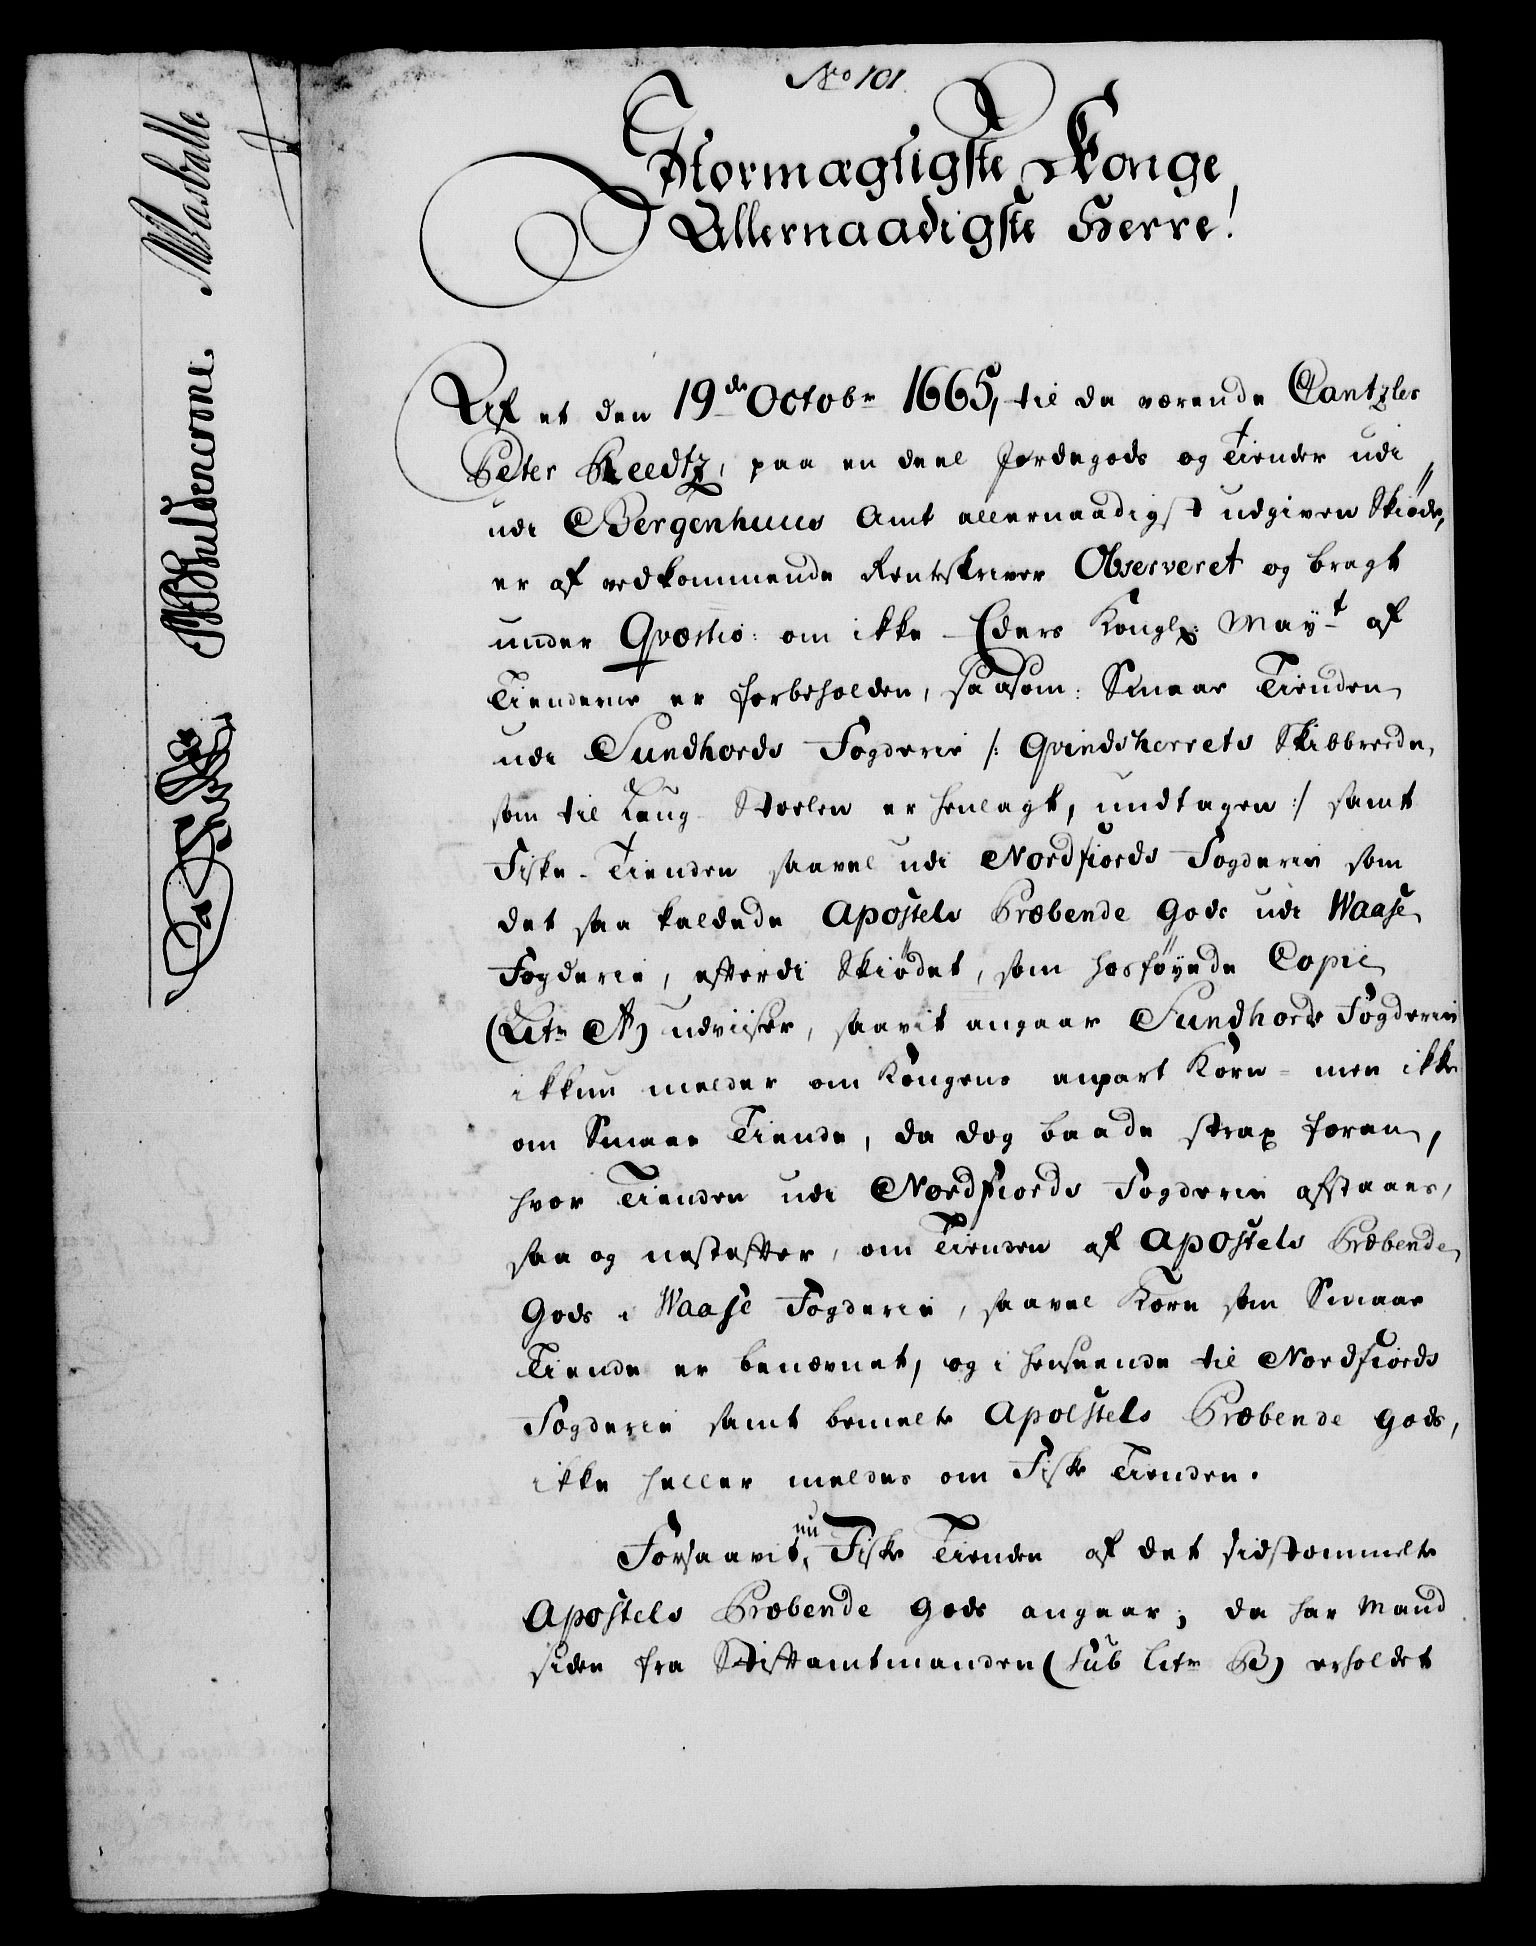 No 101.
Stormægtigste Konge
Allernaadigste Herre!
Af et den 19de Octobr 1665, til da værende Cantzler
Peter Reedtz, paa en deel Jordegods og Tiender udi
udi Bergenhuus Amt allernaadigst udgiven Skiøde,
er af vedkommende Rentskriver Observeret og bragt
under Qvæstio: om ikke Eders Kongl: Mayt af
Tienderne er forbeholden, saasom: Smaae Tienden
udi Sundhords Fogderie /: Qvindsherrets Skibbrede,
som til Laug Stoelen er henlagt, undtagen :/ samt
Fiske-Tienden saavel udi Nordfiords Fogderie som
det saa kaldede Apostels Præbende Gods udi Waase
Fogderie, efterdi Skiødet, som hosføyede Copie
(Litr A) udviiser, saavit angaar Sundhords Fogderie
ikkun melder om Kongens anpart Korn- men ikke
om Smaae Tiende, da dog baade strax foran,
hvor Tienden udi Nordfiords Fogderie afstaaes,
saa og nestefter, om Tienden af Apostels Præbende
Gods i Waase Fogderie, saavel Korn som Smaae
Tiende er benævnet, og i henseende til Nordfiords
Fogderie samt bemelte Apostels Præbende Gods,
ikke heller meldes om Fiske Tienden.
Forsaavit nu Fiske Tienden af det sidstommelte
Apostels Præbende Gods angaar; da har Mand
siden fra Stiftamtmanden (sub Litr B) erholdet
Wasballe
Guldencrone.